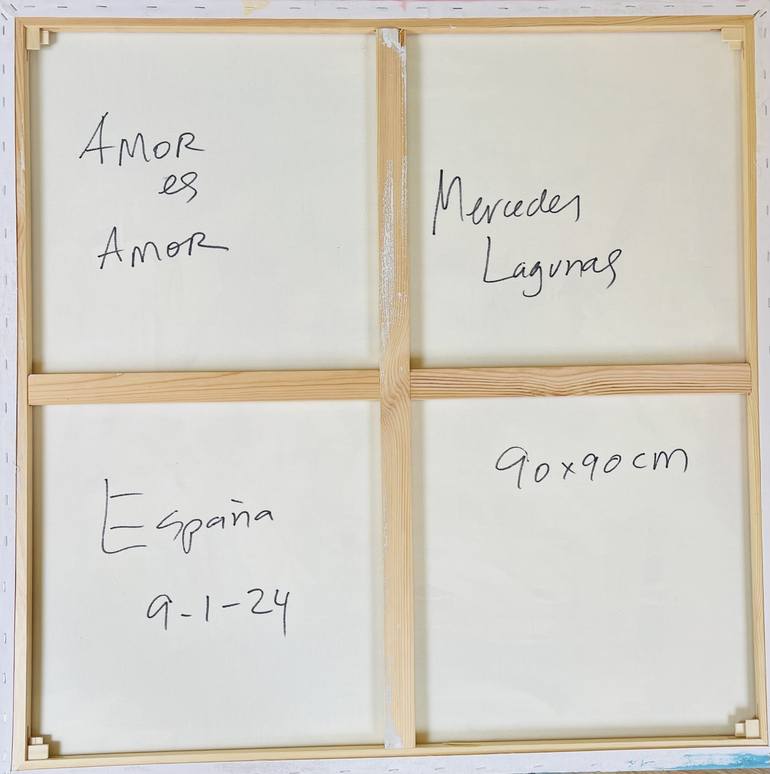 AMOR
es
AMOR
Mercedes
Lagunas
España
9-1-24
90x90cm